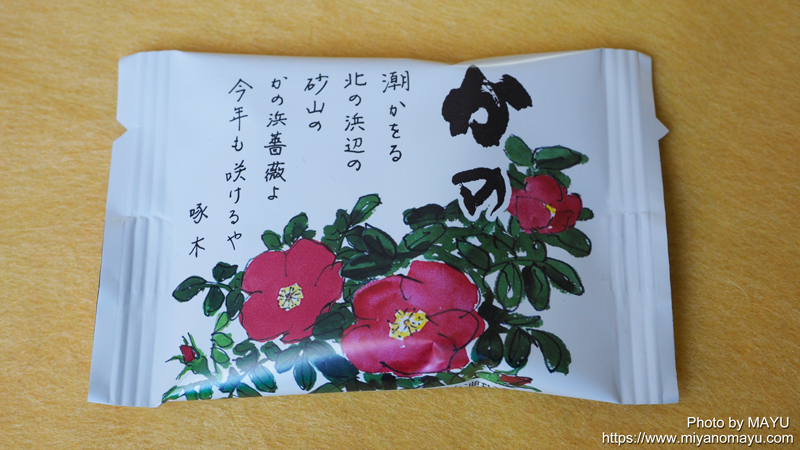 かの
潮かをる
北の浜辺の
砂山の
かの浜薔薇よ
今年も咲けるや
啄木
Photo by MAYU
https://www.miyanomayu.com